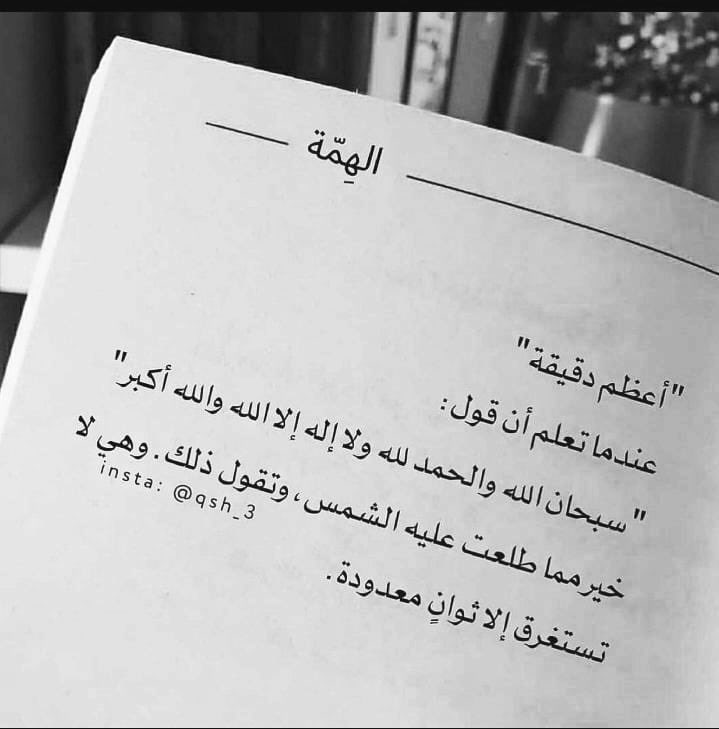 الهِمّة
"أعظم دقيقة"
عندما تعلم أن قول:
"سبحان الله والحمد لله ولا إله إلا الله والله أكبر"
خير مما طلعت عليه الشمس، وتقول ذلك. وهي لا
insta: @qsh_3
تستغرق إلا ثوانٍ معدودة.